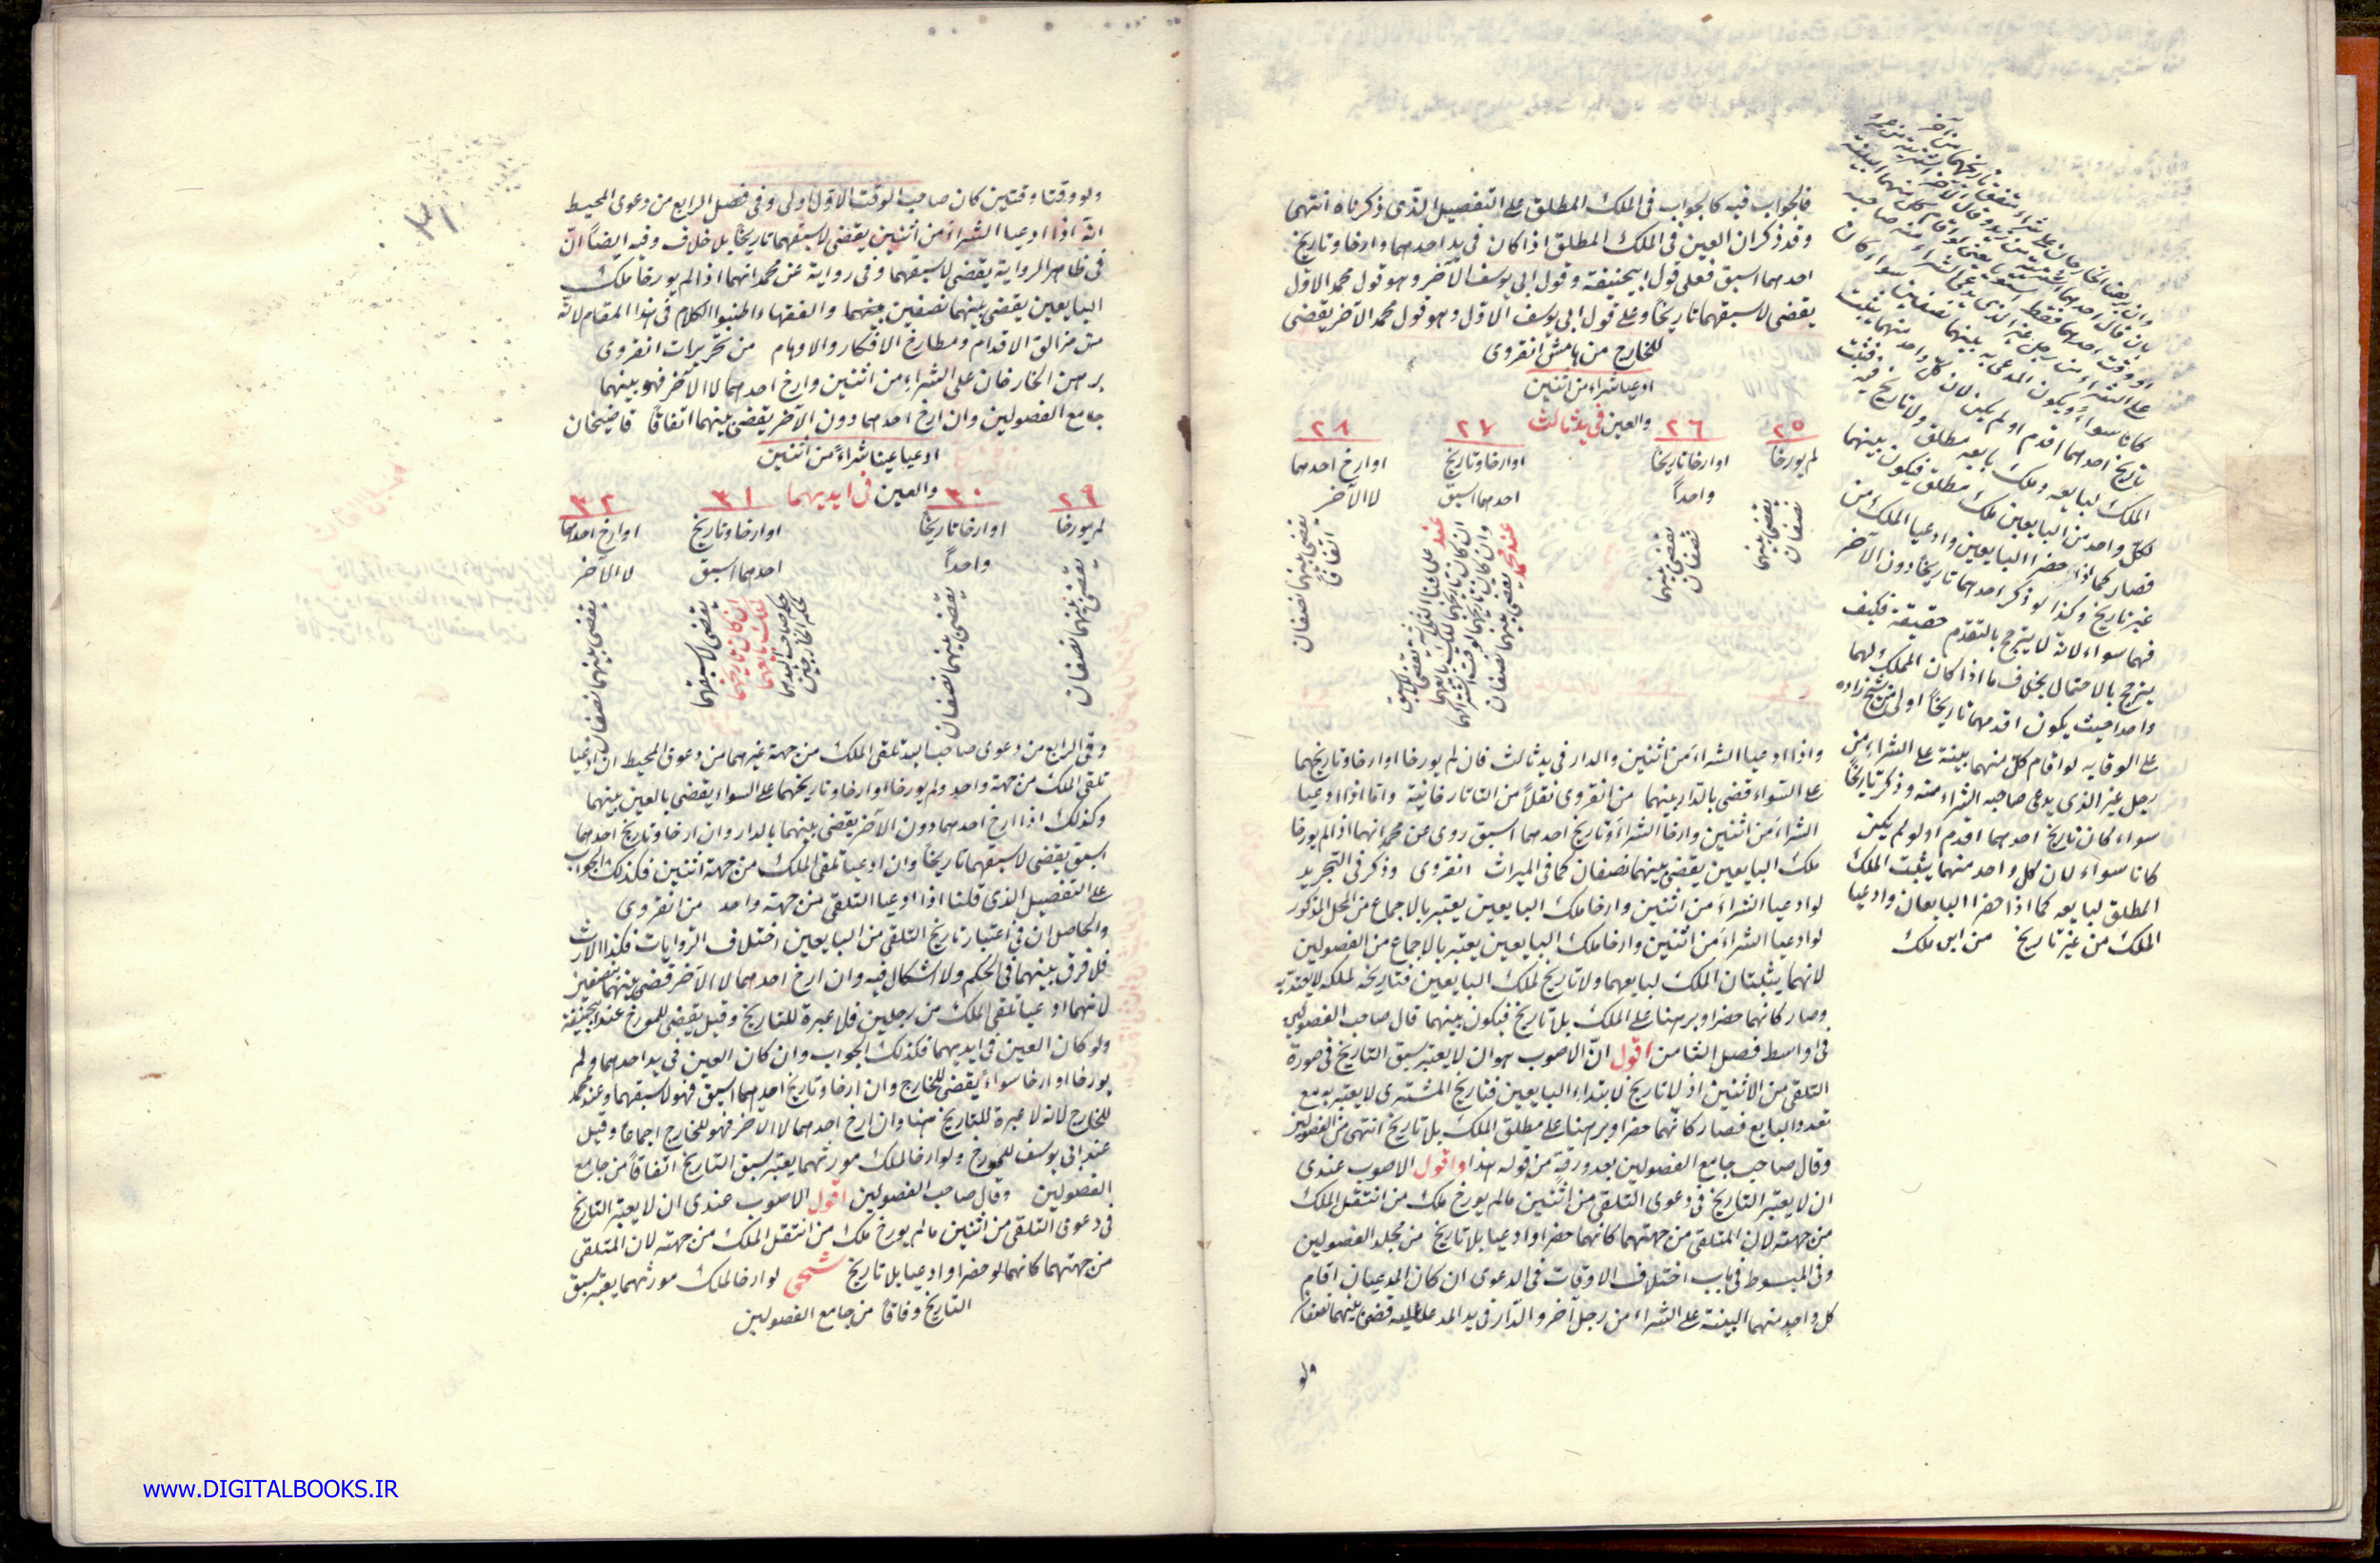 فالجواب فيه كالجواب فى الملك المطلق على التفصيل الذى ذكرناه انتهما
وقد ذكر ان العين فى الملك المطلق اذا كان فى يد احدهما وارخا وتاريخ
احدهما اسبق فعلى قول ابيحنيفة وقول ابى يوسف الآخر وهو قول محمد الاول
يقضى لاسبقهما تاريخا وعلى قول ابى يوسف الاول وهو قول محمد الآخر يقضى
للخارج من هامش انقروى
ادعيا شراء من اثنين
والعين فى يد ثالث
٢٥
لم يورخا
يقضى بينهما
نصفان
٢٦
او ارخا تاريخا
واحداً
يقضى بينهما
نصفان
٢٧
او ارخا وتاريخ
احدهما اسبق
عند محمد
٢٨
او ارخ احدهما
لا الآخر
يقضى بينهما نصفان
اتفاقاً
واذا ادعيا الشراء من اثنين والدار فى يد ثالث فان لم يورخا او ارخا وتاريخهما
على السواء قضى بالدار بينهما من انقروى نقلاً من التاتارخانية واما اذا ادعيا
الشراء من اثنين وارخا الشراء وتاريخ احدهما اسبق روى عن محمد انهما اذا لم يورخا
ملك البايعين يقضى بينهما نصفان كما فى الميراث انقروى وذكر فى التجريد
لو ادعيا الشراء من اثنين وارخا ملك البايعين يعتبر بالاجماع من المحل المذكور
لو ادعيا الشراء من اثنين وارخا ملك البايعين يعتبر بالاجماع من الفصولين
لانهما يثبتان الملك لبايعهما ولا تاريخ لملك البايعين فتاريخه لملكه لا يعتد به
وصار كانهما حضرا وبرهنا على الملك بلا تاريخ فيكون بينهما قال صاحب الفصولين
فى اواسط فصل الثامن اقول ان الاصوب هو ان لا يعتبر سبق التاريخ فى صورة
التلقى من الاثنين اذ لا تاريخ لابتداء البايعين فتاريخ المشترى لا يعتبر به مع
تعدد البايع فصار كانهما حضرا وبرهنا على مطلق الملك بلا تاريخ انتهى من الفصولين
وقال صاحب جامع الفصولين بعد ورقة من قوله هذا واقول الاصوب عندى
ان لا يعتبر التاريخ فى دعوى التلقى من اثنين مالم يورخ ملك من انتقل الملك
من جهته لان المتلقى من جهتهما كانهما حضرا وادعيا بلا تاريخ من مجلد الفصولين
وفى المبسوط فى باب اختلاف الاوقات فى الدعوى ان كان المدعيان اقام
كل واحد منهما البينة على الشراء من رجل آخر والدار فى يد المدعا عليه قضى بينهما نصفان
ولو
تاريخ احدهما اقدم او لم يكن لان كل واحد منهما يثبت
الملك لبايعه وملك بايعه مطلق ولا تاريخ فيه
لكل واحد من البايعين ملك مطلق فيكون بينهما
فصار كما اذا حضرا البايعين وادعيا الملك من
غير تاريخ وكذا لو ذكر احدهما تاريخا دون الآخر
فهما سواء لانه لا يترجح بالتقدم حقيقة فكيف
يترجح بالاحتمال بخلاف ما اذا كان المملك لهما
واحدا حيث يكون اقدمهما تاريخاً اولى من شيخ زاده
على الوقايه لو اقام كل منهما بينة على الشراء من
رجل غير الذى يدعى صاحبه الشراء منه وذكر تاريخاً
سواء كان تاريخ احدهما اقدم او لو لم يكن
كانا سواء لان كل واحد منهما يثبت الملك
المطلق لبايعه كما اذا حضرا البايعان وادعيا
الملك من غير تاريخ من ابن ملك
ولو وقتا وقتين كان صاحب الوقت الاول اولى وفى فصل الرابع من دعوى المحيط
انه اذا ادعيا الشراء من اثنين يقضى لاسبقهما تاريخاً بلا خلاف وفيه ايضاً ان
فى ظاهر الرواية يقضى لاسبقهما وفى رواية عن محمد انهما اذا لم يورخا ملك
البايعين يقضى بينهما نصفين بينهما والفقهاء اطنبوا الكلام فى هذا المقام لانه
من مزالق الاقدام ومطارح الافكار والاوهام من تحريرات انقروى
برهن الخارجان على الشراء من اثنين وارخ احدهما لا الآخر فهو بينهما
جامع الفصولين وان ارخ احدهما دون الآخر يقضى بينهما اتفاقاً قاضيخان
ادعيا عينا شراءً من اثنين
والعين فى ايديهما
٢٩
لم يورخا
يقضى بينهما نصفان
٣٠
او ارخا تاريخاً
واحداً
يقضى بينهما نصفان
٣١
او ارخا وتاريخ
احدهما اسبق
يقضى لاسبقهما
ان كان تاريخهما
لملك بايعهما
٣٢
او ارخ احدهما
لا الآخر
يقضى بينهما نصفان
وفى الرابع من دعوى صاحب اليد تلقى الملك من جهة غيرهما من دعوى المحيط ان ادعيا
تلقى الملك من جهة واحد ولم يورخا او ارخا وتاريخهما على السواء يقضى بالعين بينهما
وكذلك اذا ارخ احدهما دون الآخر يقضى بينهما بالدار وان ارخا وتاريخ احدهما
اسبق يقضى لاسبقهما تاريخاً وان ادعيا تلقى الملك من جهة اثنين فكذلك الجواب
على التفصيل الذى قلنا اذا ادعيا التلقى من جهة واحد من انقروى
والحاصل ان فى اعتبار تاريخ التلقى من البايعين اختلاف الروايات فكذا الارث
فلا فرق بينهما فى الحكم ولا اشكال فيه وان ارخ احدهما لا الآخر قضى بينهما نصفين
لانهما ادعيا تلقى الملك من رجلين فلا عبرة للتاريخ وقيل يقضى للمورخ عند ابيحنيفة
ولو كان العين فى ايديهما فكذلك الجواب وان كان العين فى يد احدهما ولم
يورخا او ارخا سواءً يقضى للخارج وان ارخا وتاريخ احدهما اسبق فهو لاسبقهما وعند محمد
للخارج لانه لا عبرة للتاريخ هنا وان ارخ احدهما لا الآخر فهو للخارج اجماعا وقيل
عند ابى يوسف للمورخ ولو ارخا لملك مورثهما يعتبر سبق التاريخ اتفاقاً من جامع
الفصولين وقال صاحب الفصولين اقول الاصوب عندى ان لا يعتبر التاريخ
فى دعوى التلقى من اثنين مالم يورخ ملك من انتقل الملك من جهته لان المتلقى
من جهتهما كانهما لو حضرا وادعيا بلا تاريخ شحى لو ارخا لملك مورثهما يعتبر سبق
التاريخ وفاقاً من جامع الفصولين
www.DIGITALBOOKS.IR